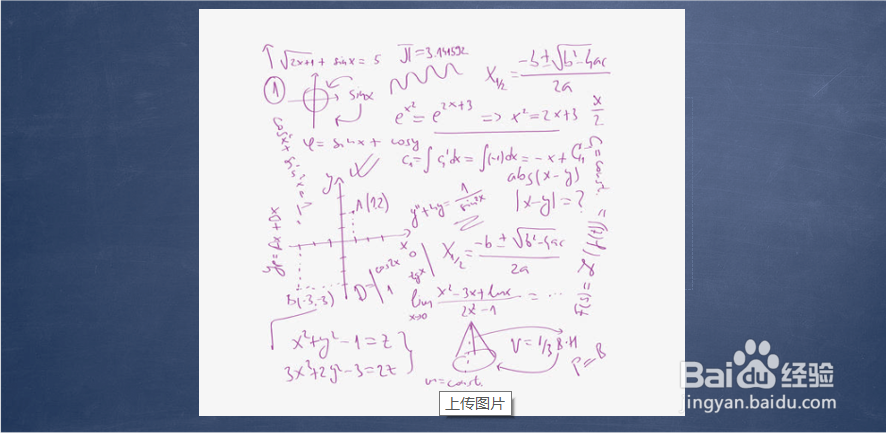 √2x+1 + sinx = 5
π = 3.141592
x₁/₂ = (-b ± √b²-4ac) / 2a
1
sinx
e^x² = e^2x+3 => x² = 2x+3
x/2
φ = sinx + cosy
C₁ = ∫ C₁' dx = ∫(-1)dx = -x + C₁
abs(x-y)
y
A(1,2)
|x-y| = ?
x
x₁/₂ = (-b ± √b²-4ac) / 2a
B(-3,-3)
lim x→0 (x² - 3x + lnx) / (2x² - 1) = ...
x² + y² - 1 = z
3x³ + 2y² - 3 = 2z
V = 1/3 B·H
P = B
v = const.
上传图片
Baidu经验
jingyan.baidu.com